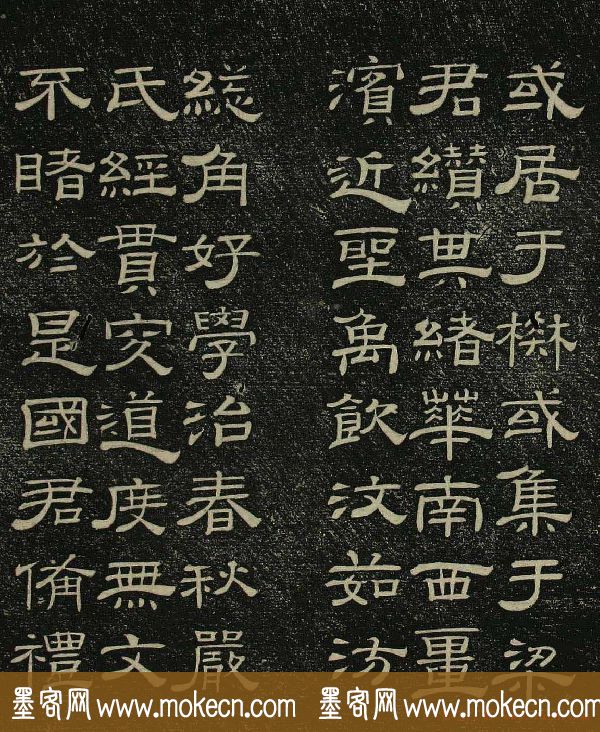 或居于楚或集于梁
君纘其緒華南西畺
濱近聖禹飲汶茹汸
緫角好學治春秋嚴
氏經貫究道度無文
不睹於是國君備禮
墨客网 www.mokecn.com 墨客网 www.mokecn.com